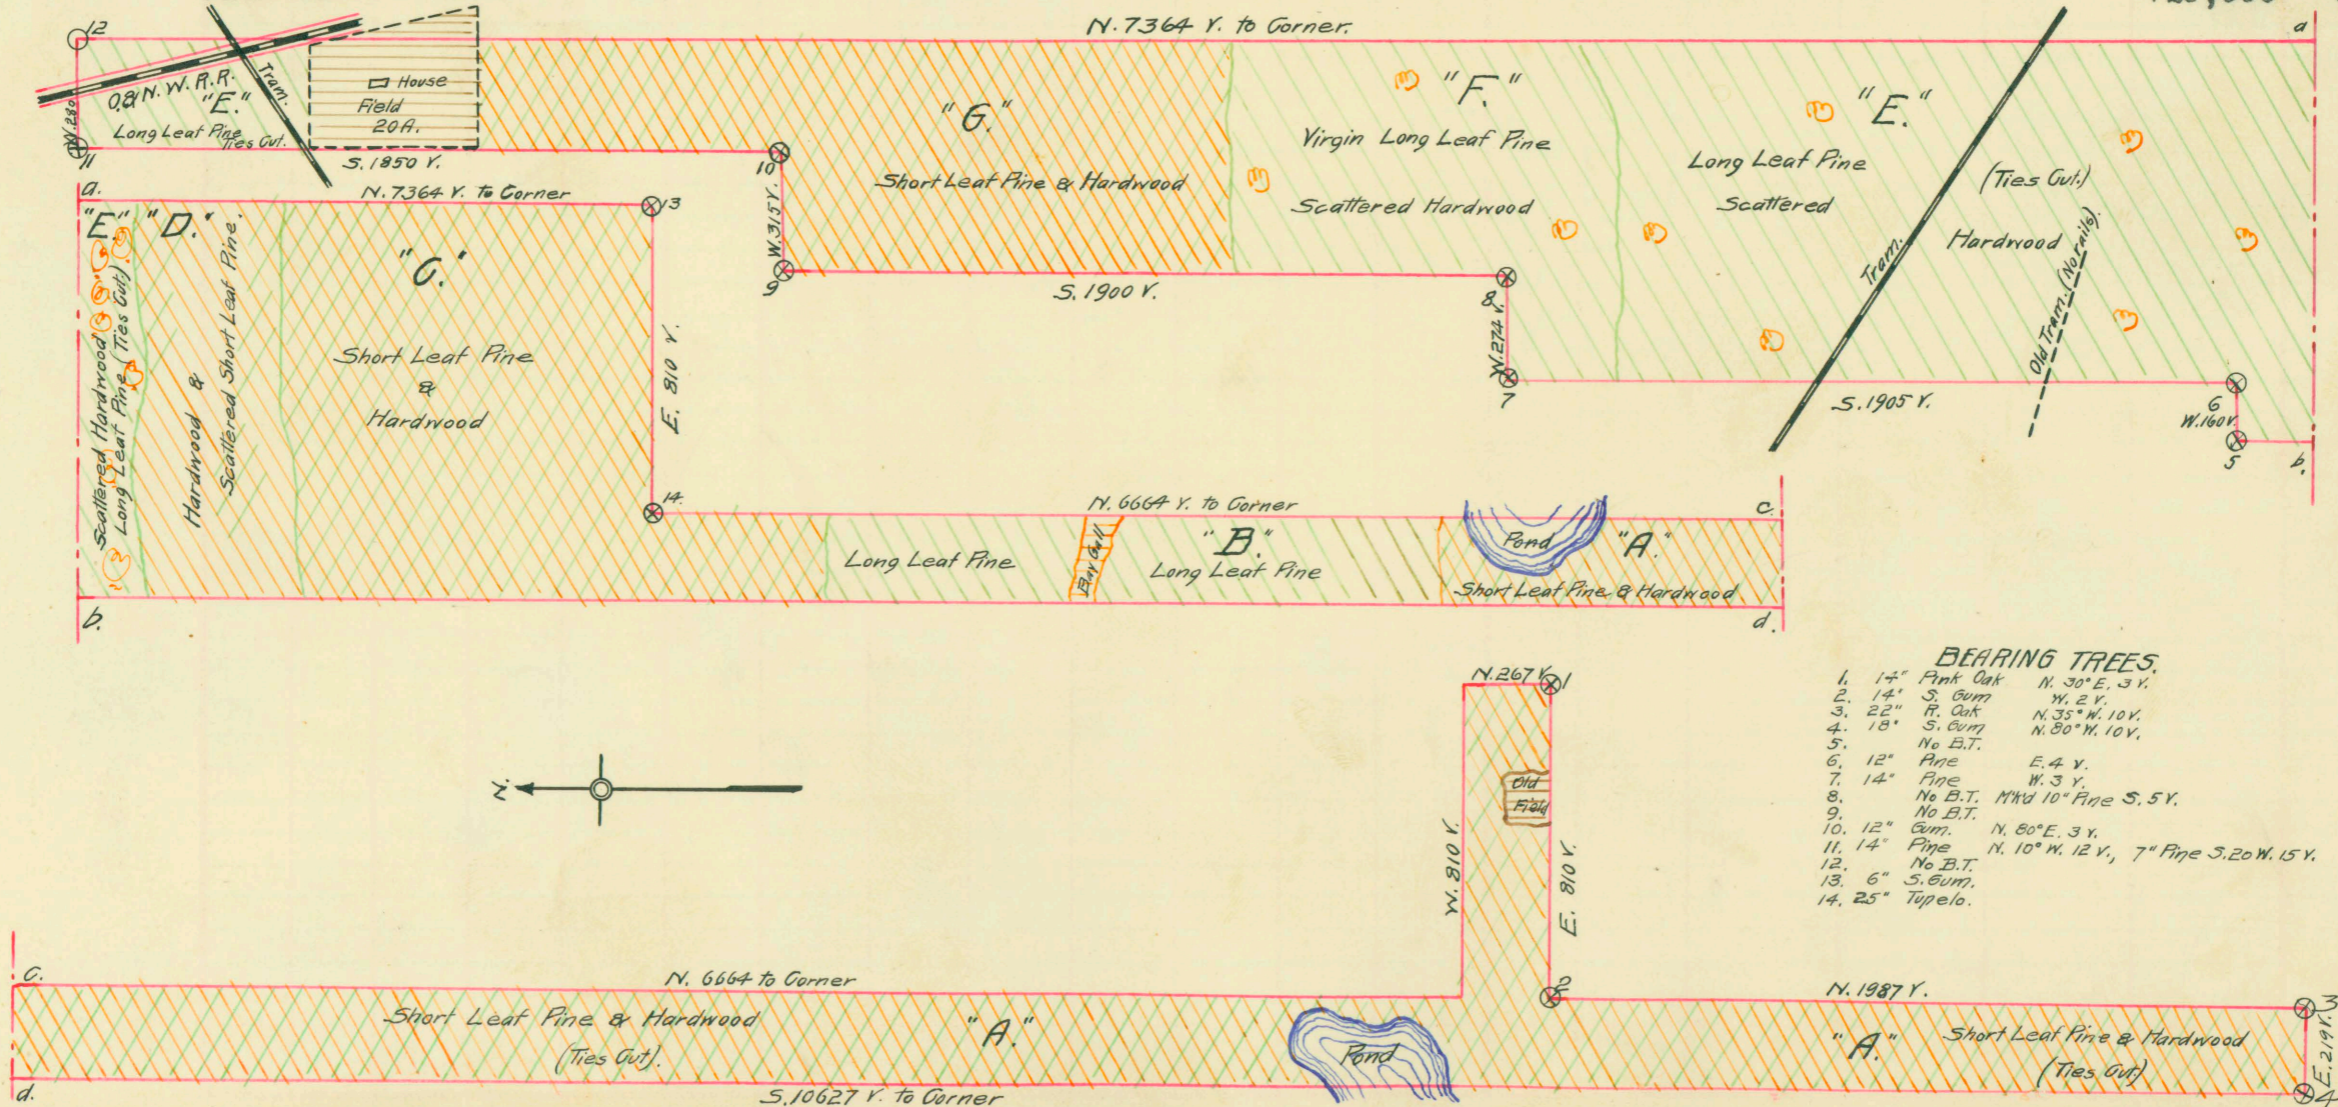 N. 7364 V. to Corner.
a
12
O. & N. W. R. R.
Tram.
"E."
Long Leaf Pine
Ties Cut.
W. 280
11
House
Field
20 A.
S. 1850 V.
"G."
Short Leaf Pine & Hardwood
10
W. 315 V.
9
S. 1900 V.
"F."
Virgin Long Leaf Pine
Scattered Hardwood
8
W. 274 V.
7
"E."
Long Leaf Pine
Scattered
(Ties Cut.)
Hardwood
Tram.
Old Tram. (No rails).
S. 1905 V.
6
W. 160 V.
5
b.
a.
N. 7364 V. to Corner
13
"E."
"D."
Scattered Hardwood
Long Leaf Pine (Ties Cut)
Hardwood &
Scattered Short Leaf Pine.
"C."
Short Leaf Pine
&
Hardwood
E. 810 V.
14.
b.
N. 6664 V. to Corner
c.
Long Leaf Pine
Bay Gall
"B."
Long Leaf Pine
Pond
"A."
Short Leaf Pine & Hardwood
d.
BEARING TREES.
1. 14" Pink Oak N. 30° E. 3 V.
2. 14" S. Gum W. 2 V.
3. 22" R. Oak N. 35° W. 10 V.
4. 18" S. Gum N. 80° W. 10 V.
5. No B.T.
6. 12" Pine E. 4 V.
7. 14" Pine W. 3 V.
8. No B.T. M'k'd 10" Pine S. 5 V.
9. No B.T.
10. 12" Gum. N. 80° E. 3 V.
11. 14" Pine N. 10° W. 12 V., 7" Pine S. 20 W. 15 V.
12. No B.T.
13. 6" S. Gum.
14. 25" Tupelo.
N.
N. 267 V.
1
Old
Field
W. 810 V.
E. 810 V.
2
c.
N. 6664 to Corner
N. 1987 V.
3
Short Leaf Pine & Hardwood
(Ties Cut).
"A."
Pond
"A."
Short Leaf Pine & Hardwood
(Ties Cut)
E. 219 V.
d.
S. 10627 V. to Corner
4